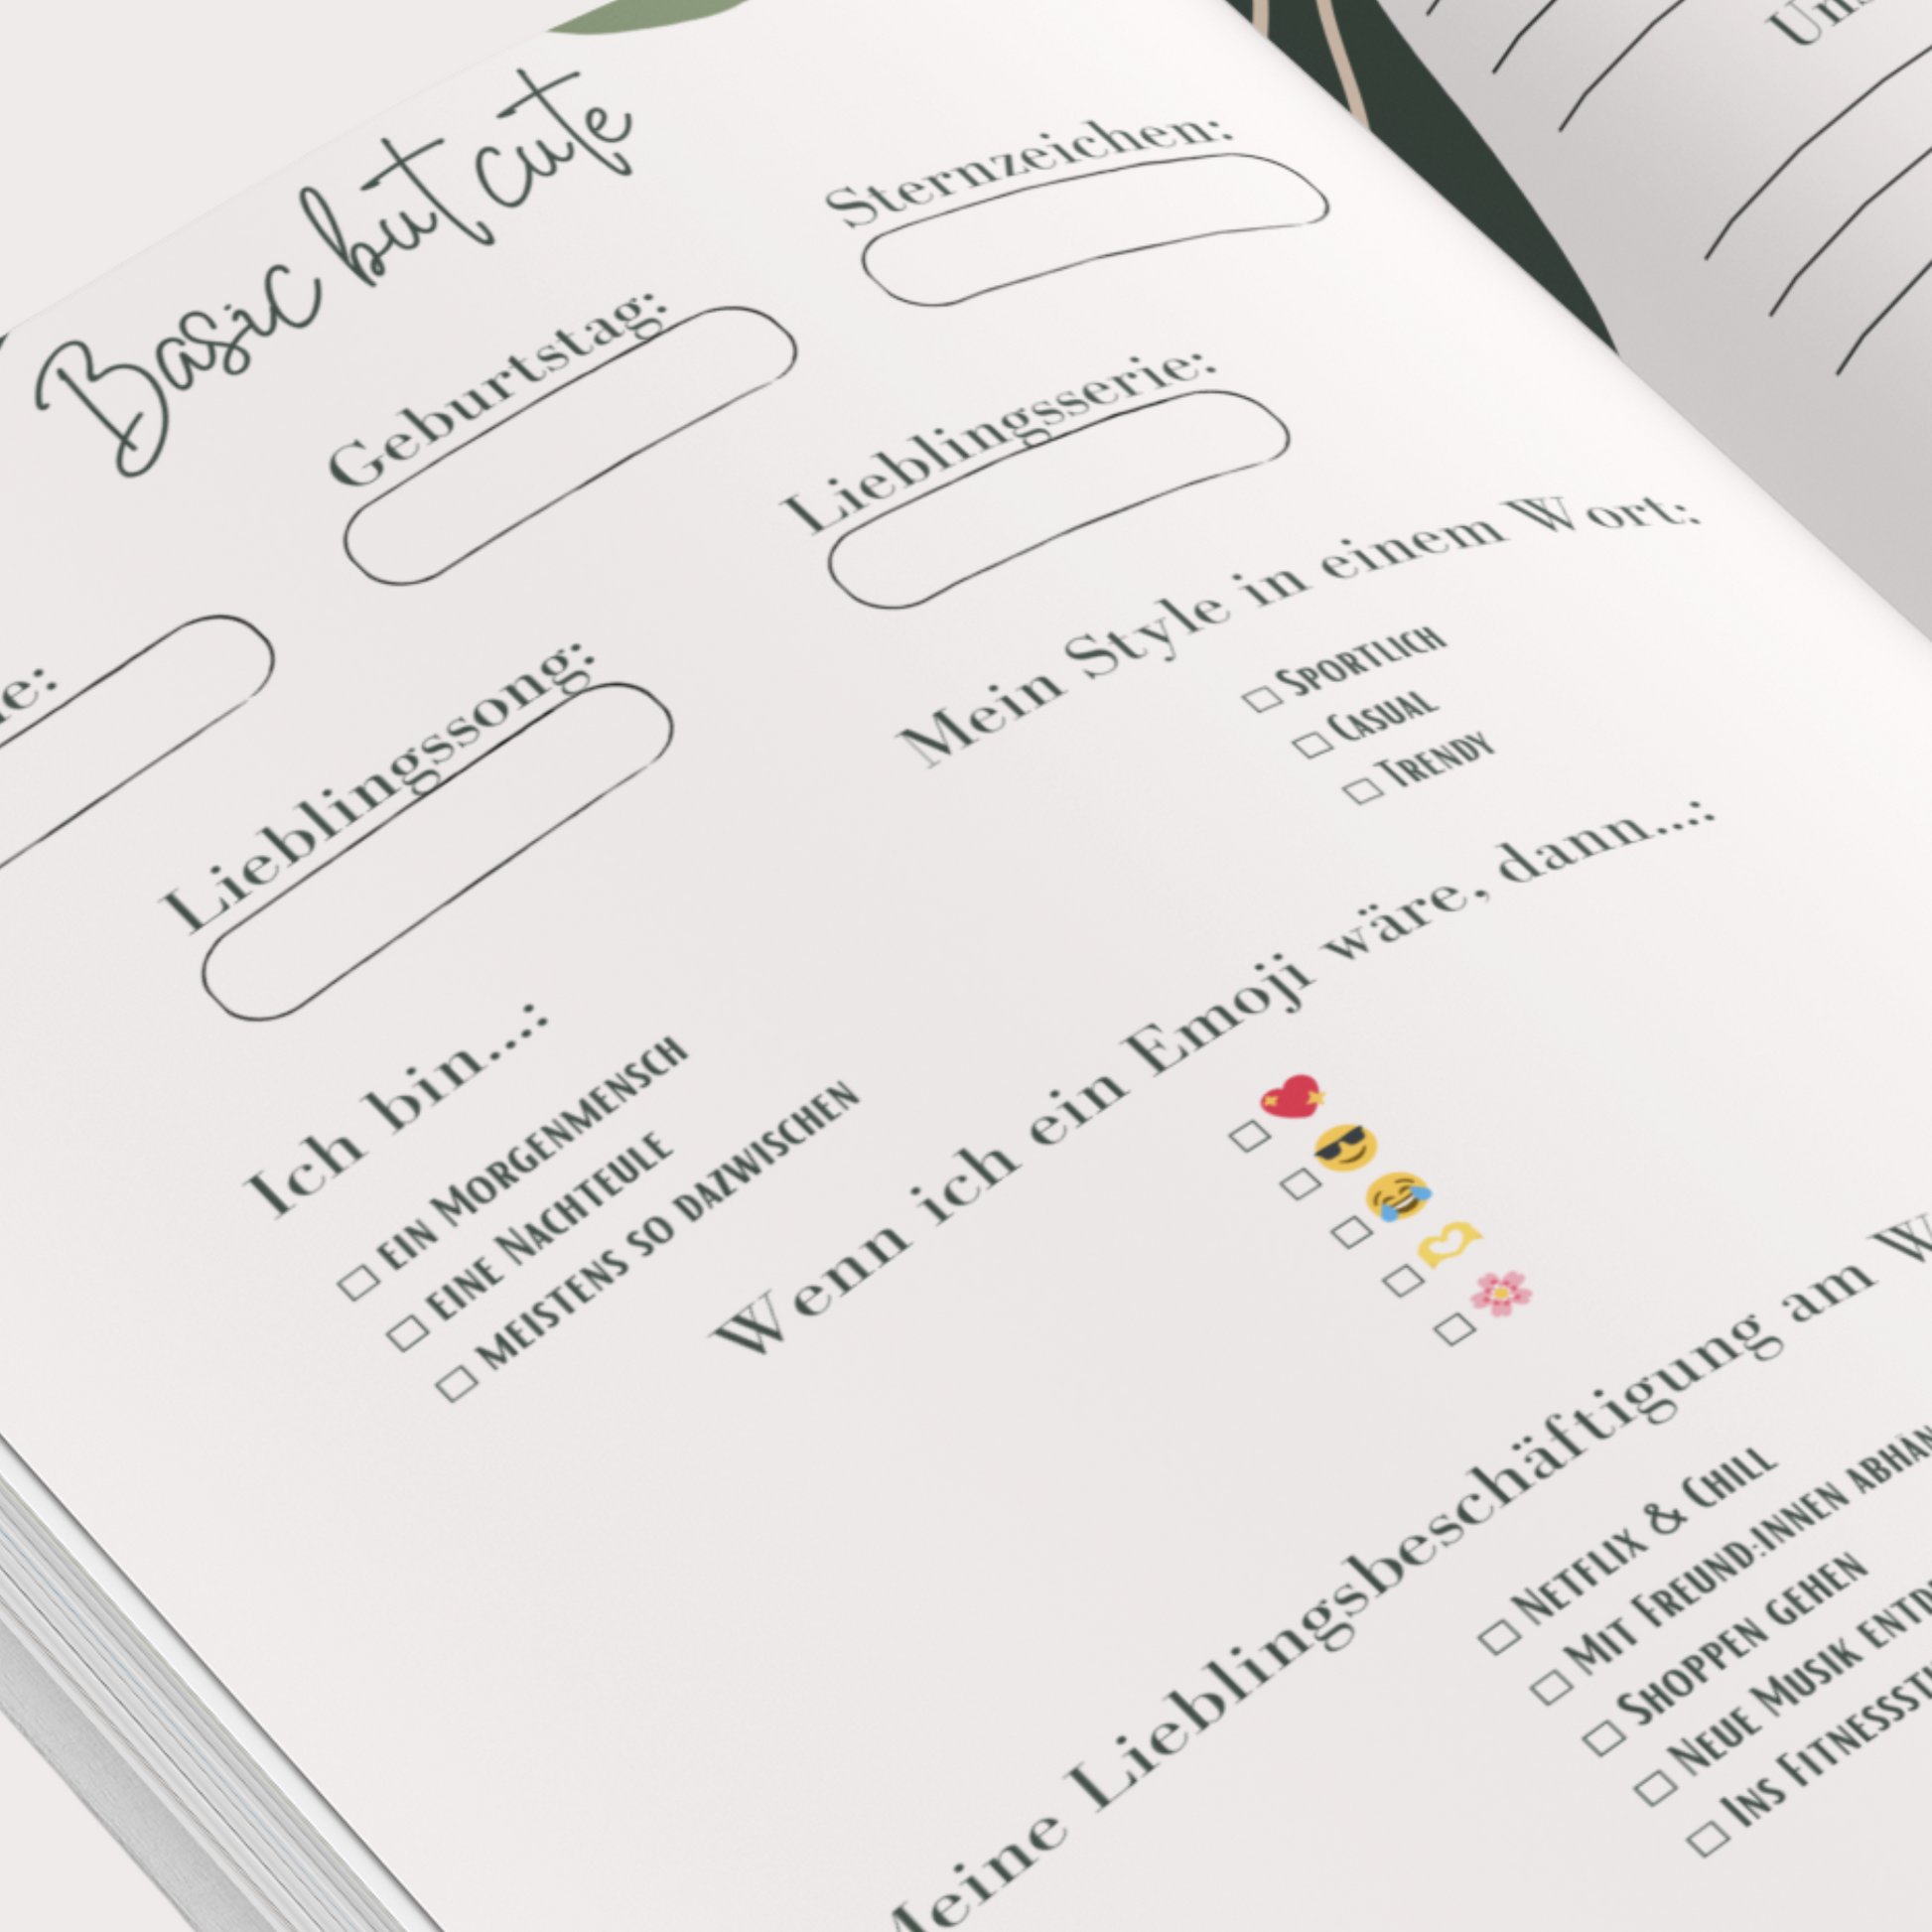 Basic but cute
Geburtstag:
Sternzeichen:
Lieblingssong:
Lieblingsserie:
Ich bin...:
☐ EIN MORGENMENSCH
☐ EINE NACHTEULE
☐ MEISTENS SO DAZWISCHEN
Mein Style in einem Wort:
☐ SPORTLICH
☐ CASUAL
☐ TRENDY
Wenn ich ein Emoji wäre, dann...:
☐ 💖
☐ 😎
☐ 😂
☐ 🫶
☐ 🌸
Meine Lieblingsbeschäftigung am
☐ NETFLIX & CHILL
☐ MIT FREUND:INNEN
☐ SHOPPEN GEHEN
☐ NEUE MUSIK
☐ INS